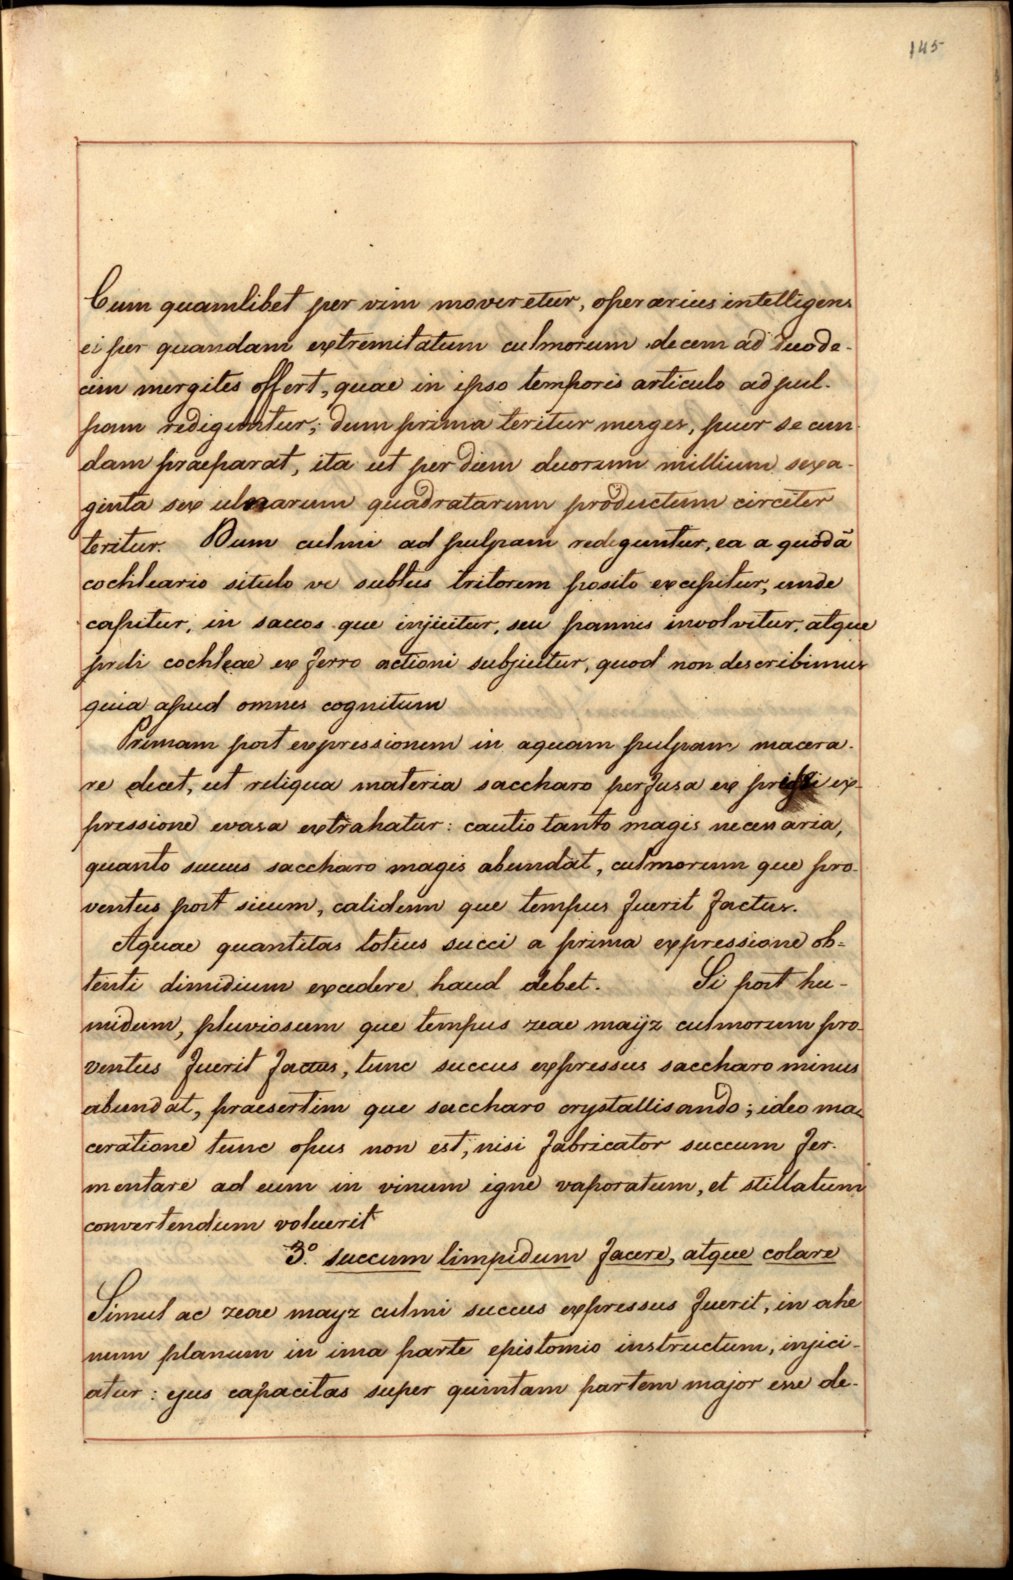 145
Cum quamlibet per vim moveretur, operarius intelligens
ei per quandam extremitatum culmorum decem ad duode-
cim mergites offert, quae in ipso temporis articulo ad pul-
pam rediguntur; dum prima teritur merges, puer secun-
dam praeparat, ita ut per diem duorum millium sexa-
ginta sex ulnarum quadratarum productum circiter
teritur. Dum culmi ad pulpam rediguntur, ea a quodā
cochleario situlo ve subtus tritorem posito excipitur, unde
capitur, in saccos que injicitur, seu pannis involvitur, atque
preli cochleae ex ferro actioni subjicitur, quod non describimus
quia apud omnes cognitum
Primam post expressionem in aquam pulpam macera-
re decet, ut reliqua materia saccharo perfusa ex ex-
pressione evasa extrahatur: cautio tanto magis necessaria,
quanto succus saccharo magis abundat, culmorum que pro-
ventus post sicum, calidum que tempus fuerit factus.
Aquae quantitas totius succi a prima expressione ob-
tenti dimidium excedere haud debet. Si post hu-
midum, pluviosum que tempus zeae maÿz culmorum pro-
ventus fuerit factus, tunc succus expressus saccharo minus
abundat, praesertim que saccharo crystallisando; ideo ma-
ceratione tunc opus non est, nisi fabricator succum fer-
mentare ad eum in vinum igne vaporatum, et stillatum
convertendum voluerit
3.º succum limpidum facere, atque colare
Simul ac zeae mayz culmi succus expressus fuerit, in ahe
num planum in ima parte epistomio instructum, injici-
atur: ejus capacitas super quintam partem major esse de-